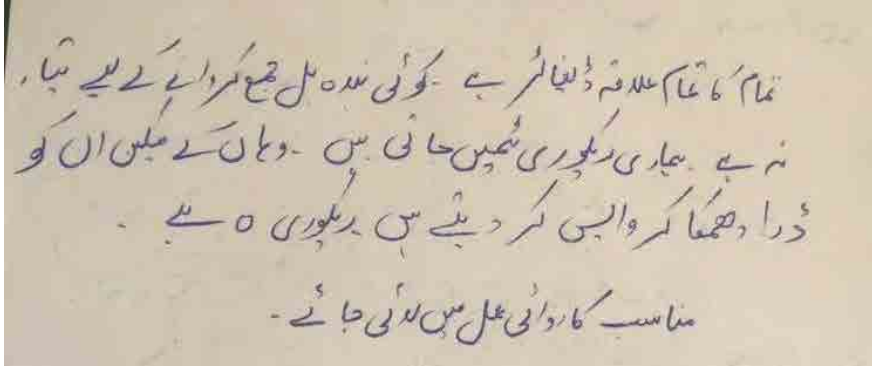 تمام کا تمام علاقہ ڈیفالٹر ہے ۔ کوئی بندہ بل جمع کروانے کے لیے تیار
نہ ہے ۔ ہماری ریکوری ٹیمیں جاتی ہیں ۔ وہاں کے مکین ان کو
ڈرا دھمکا کر واپس کر دیتے ہیں ۔ ریکوری 0 ہے ۔
مناسب کاروائی عمل میں لائی جائے ۔